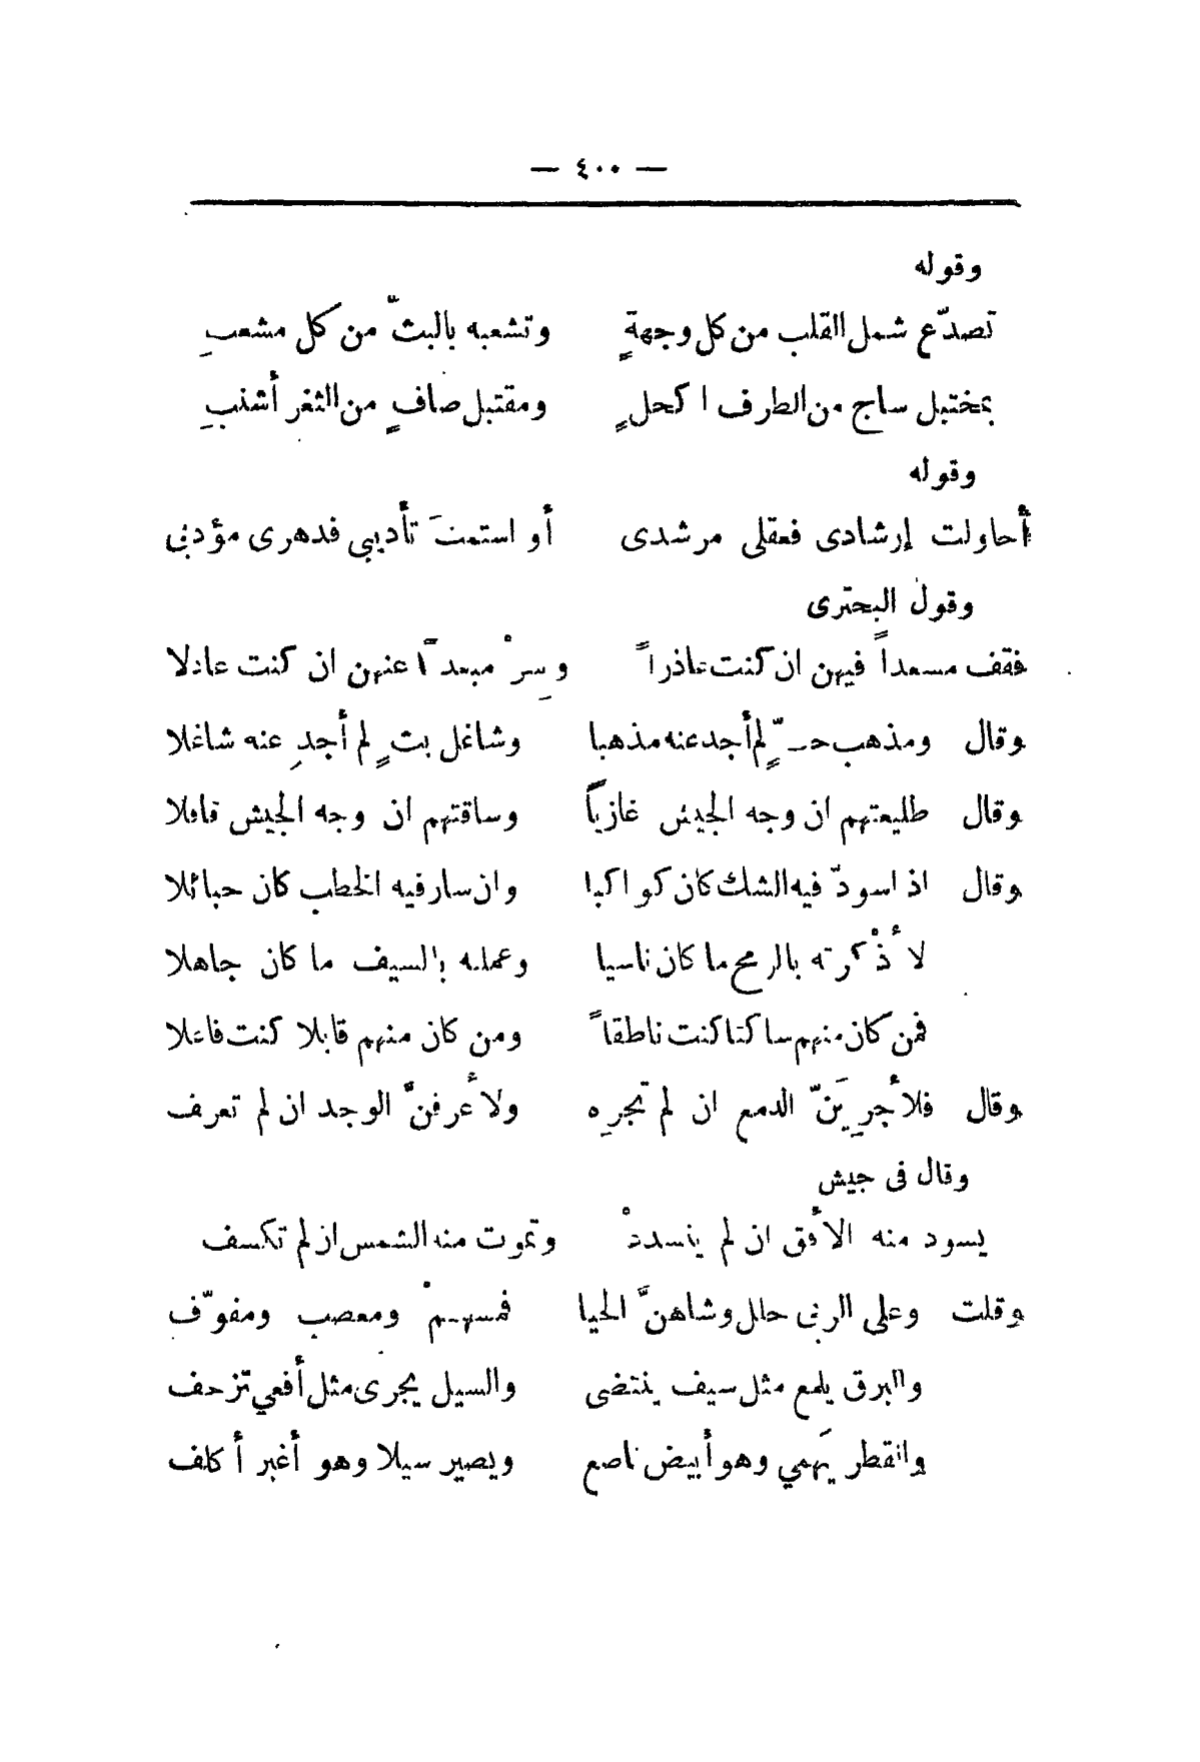 — ٤٠٠ —
وقوله
تصدّع شمل القلب من كل وجهةٍ وتشعبه بالبثّ من كل مشعبِ
بمختبل ساج من الطرف اكحلٍ ومقتبل صافٍ من الثغر أشنبِ
وقوله
أحاولت إرشادى فعقلى مرشدى أو استمتَ تأديبى فدهرى مؤدبى
وقول البحترى
فقف مسعداً فيهن ان كنت عاذراً وسِرْ مبعداً عنهن ان كنت عاذلا
وقال ومذهب حبٍّ لم أجد عنه مذهبا وشاغل بثٍ لم أجدِ عنه شاغلا
وقال طليعتهم ان وجه الجيش غازياً وساقتهم ان وجه الجيش قافلا
وقال اذ اسودّ فيه الشك كان كواكبا وان سار فيه الخطب كان حبائلا
لأذْكرته بالرمح ما كان ناسيا وعملته بالسيف ما كان جاهلا
فمن كان منهم ساكنا كنت ناطقاً ومن كان منهم قابلا كنت فاعلا
وقال فلأجرِيَنّ الدمع ان لم تجرِه ولأعرفنَّ الوجد ان لم تعرف
وقال فى جيش
يسود منه الأفق ان لم ينسددْ وتموت منه الشمس ان لم تكسف
وقلت وعلى الربى حلل وشاهنَّ الحيا فمسهمْ ومعصب ومفوّف
والبرق يلمع مثل سيف ينتضى والسيل يجرى مثل أفعي تزحف
والقطر يَهمي وهو أبيض ناصع ويصير سيلا وهو أغبر أكلف